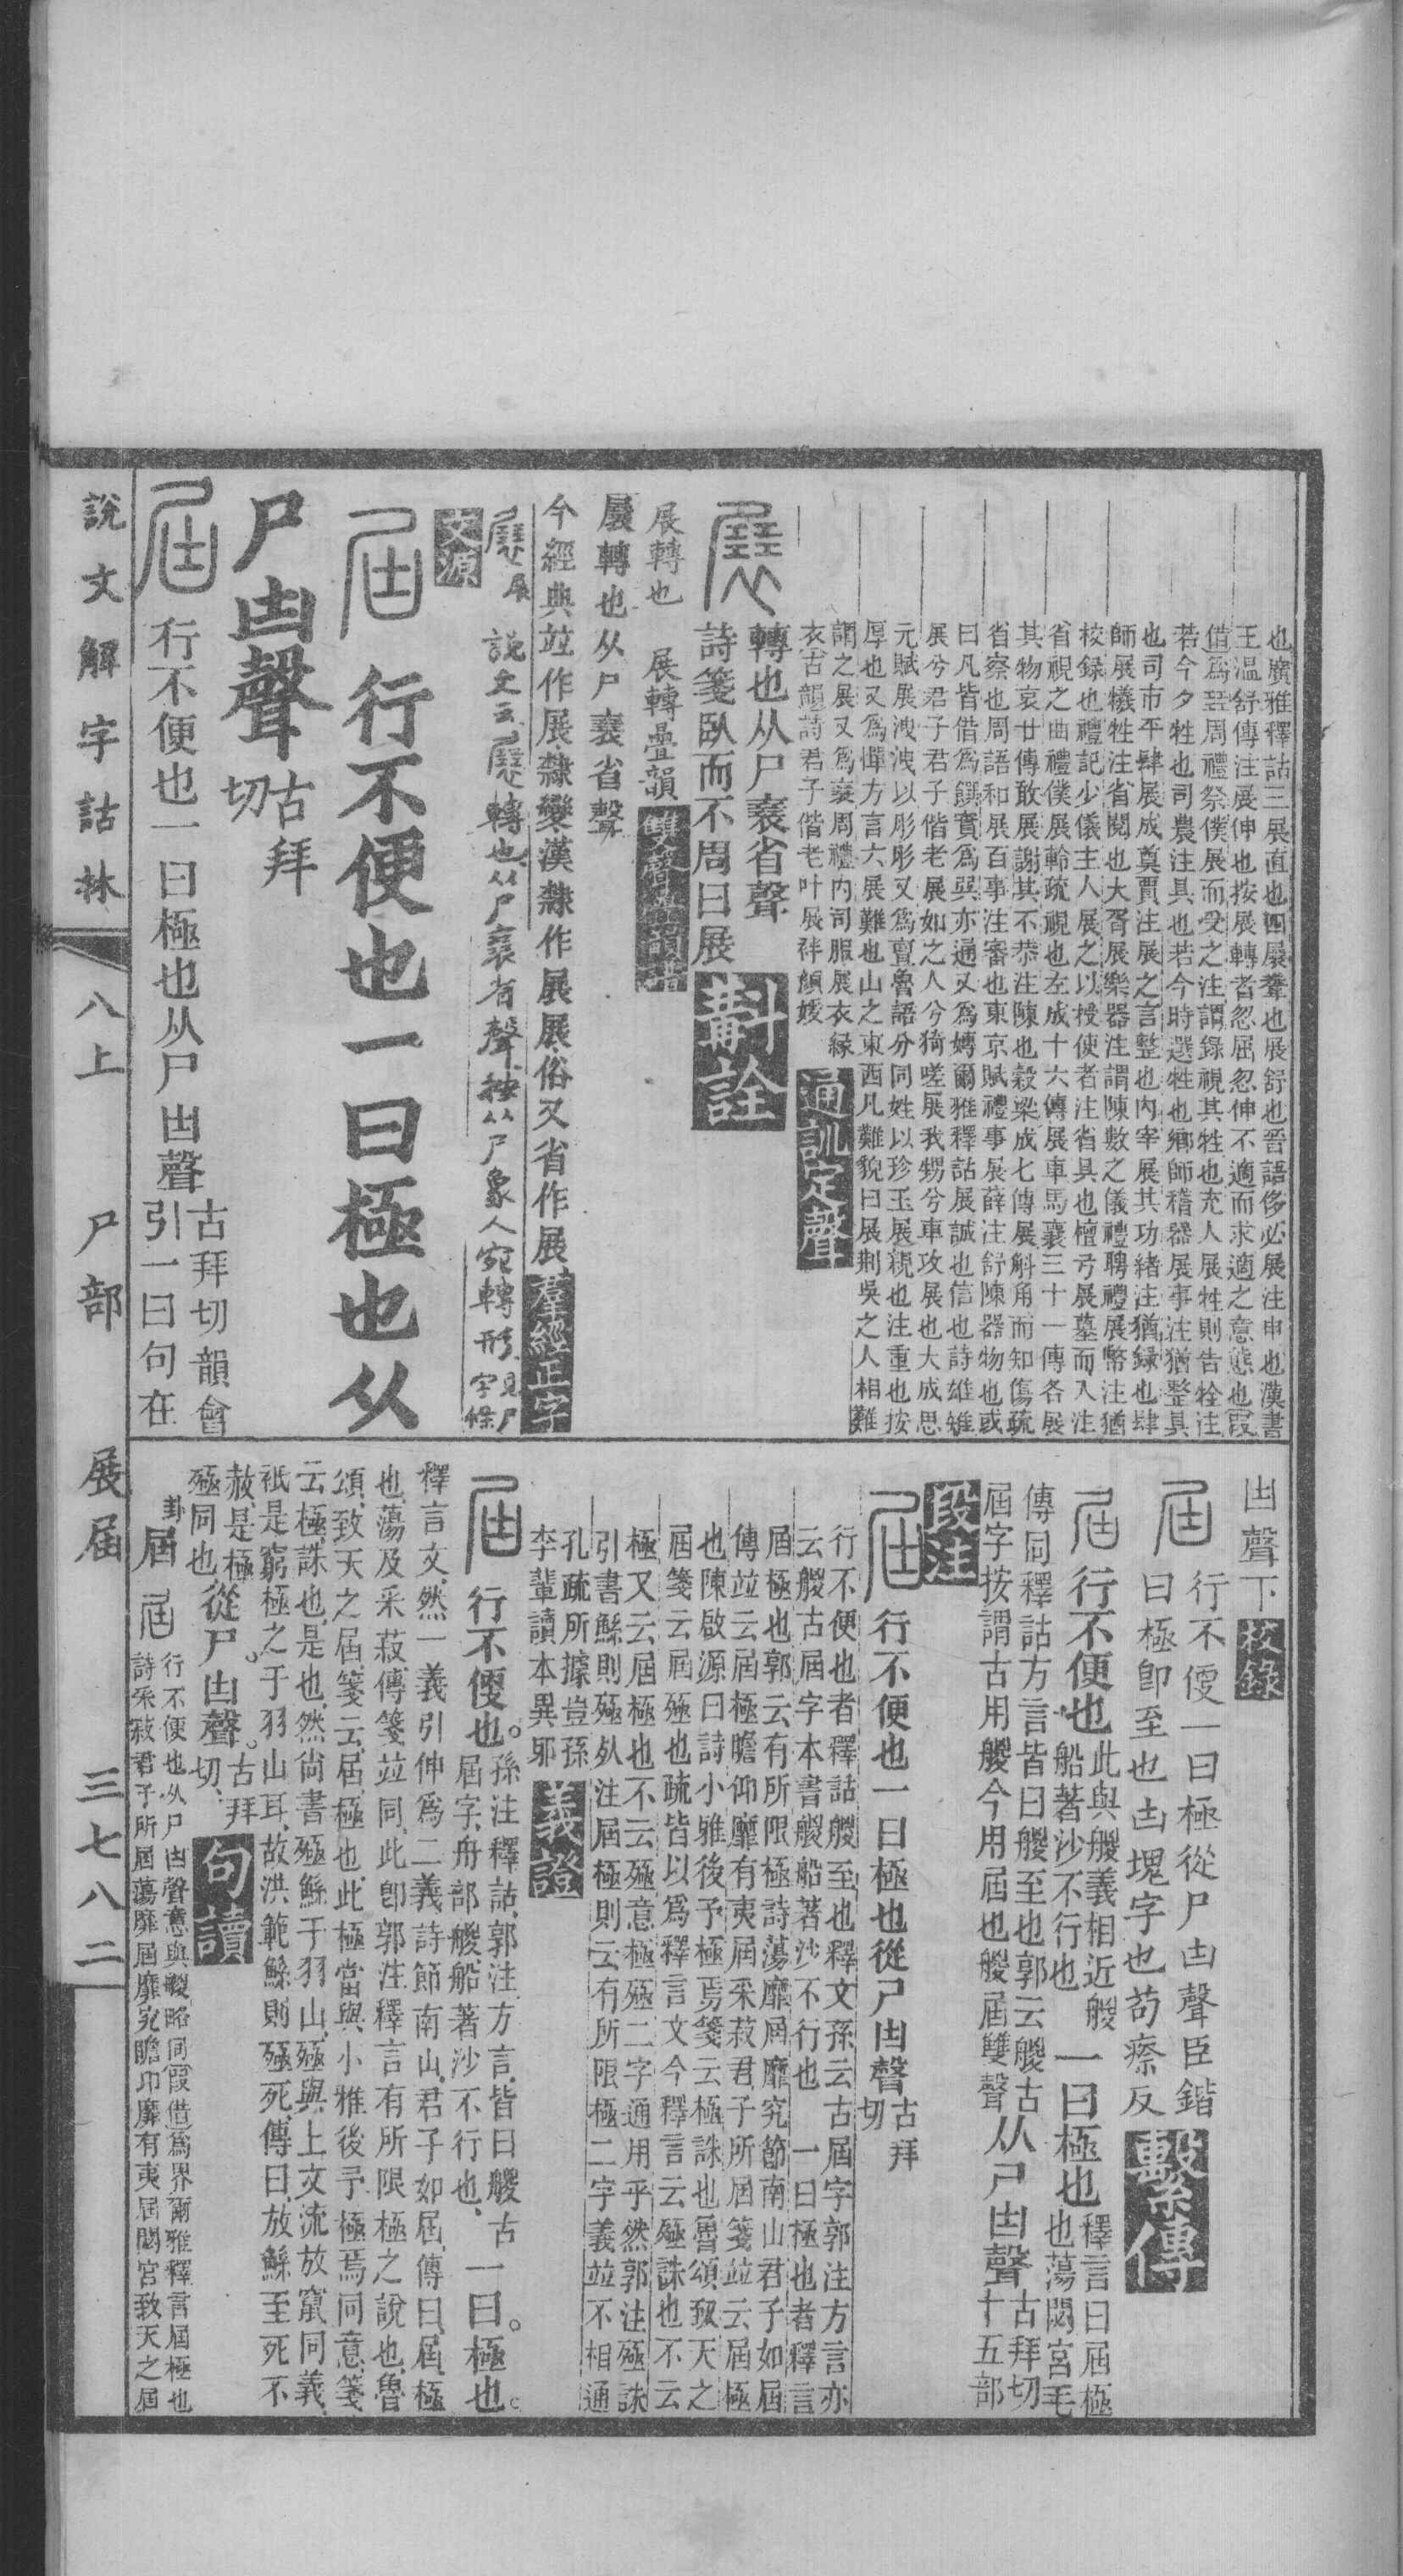 也廣雅釋詁三展直也四展聾也展舒也晉語侈必展注申也漢書
王溫舒傳注展伸也按展轉者忽屈忽伸不適而求適之意態也叚
借為𠭖周禮祭僕展而受之注謂錄視其牲也充人展牲則告牷注
若今夕牲也司農注具也若今時選牲也鄉師稽器展事注猶整具
也司市平肆展成奠賈注展之言整也內宰展其功緒注猶錄也肆
師展犧牲注省閱也大胥展樂器注謂陳數之儀禮聘禮展幣注猶
校錄也禮記少儀主人展之以授使者注省具也檀弓展墓而入注
省視之曲禮僕展軨疏視也左成十六傳展車馬襄三十一傳各展
其物哀廿傳敢展謝其不恭注陳也穀梁成七傳展斛角而知傷疏
省察也周語和展百事注審也東京賦禮事展薛注舒陳器物也或
曰凡皆借為饌賁為巽亦通又為嫥爾雅釋詁展誠也信也詩雄雉
展兮君子君子偕老展如之人兮猗嗟展我甥兮車攻展也大成思
元賦展洩洩以彤彤又為亶魯語分同姓以珍玉展親也注重也按
厚也又為憚方言六展難也山之東西凡難貌曰展荆吳之人相難
謂之展又為襄周禮內司服展衣緣
衣古韻詩君子偕老叶展袢顏媛 通訓定聲
轉也从尸㠭省聲
詩箋臥而不周曰展 斠詮
展轉也 展轉疊韻 雙聲疊韻譜
展轉也从尸㠭省聲
今經典竝作展隸變漢隸作展展俗又省作展 羣經正字
展展 說文云展轉也从尸㠭省聲按从尸象人宛轉形見尸字條
文源
屆 行不便也一曰極也从
尸凷聲 古拜切
屆 行不便也一曰極也从尸凷聲 古拜切韻會引一曰句在
凷聲下 校錄
屆 行不便一曰極從尸凷聲臣鍇
曰極卽至也凷塊字也苟瘵反 繫傳
屆 行不便也 此與艐義相近艐船著沙不行也 一曰極也 釋言曰屆極也蕩閟宮毛
傳同釋詁方言皆曰艐至也郭云艐古
屆字按謂古用艐今用屆也艐屆雙聲 从尸凷聲 古拜切十五部
段注
屆 行不便也一曰極也從尸凷聲 古拜切
行不便也者釋詁艐至也釋文孫云古屆字郭注方言亦
云艐古屆字本書艐船著沙不行也 一曰極也者釋言
屆極也郭云有所限極詩蕩靡屆靡究節南山君子如屆
傳竝云屆極瞻仰靡有夷屆采菽君子所屆箋竝云屆極
也陳啟源曰詩小雅後予極焉箋云極誅也魯頌致天之
屆箋云屆殛也疏皆以為釋言文今釋言云殛誅也不云
極又云屆極也不云殛意極殛二字通用乎然郭注殛誅
引書鯀則殛死注屆極則云有所限極二字義竝不相通
孔疏所據豈孫
李輩讀本異邪 義證
屆 行不便也。孫注釋詁、郭注方言、皆曰艐古屆字、舟部艐船著沙不行也、 一曰。極也。
釋言文、然一義引伸為二義、詩節南山、君子如屆、傳曰、屆、極
也、蕩及采菽、傳箋竝同、此卽郭注釋言有所限極之說也、魯
頌、致天之屆、箋云、屆、極也、此極當與小雅後予極焉同意、箋
云、極、誅也、是也、然尚書殛鯀于羽山、殛與上文流放竄同義、
衹是窮極之于羽山耳、故洪範鯀則殛死、傳曰、放鯀至死不
赦、是極
殛同也、從尸。凷聲。古拜切、 句讀
卦屆 屆 行不便也从尸凷聲意與艐略同叚借為界爾雅釋言屆極也
詩采菽君子所屆蕩靡屆靡究瞻卬靡有夷屆閟宮致天之屆
說文解字詁林 八上 尸部 展屆 三七八二